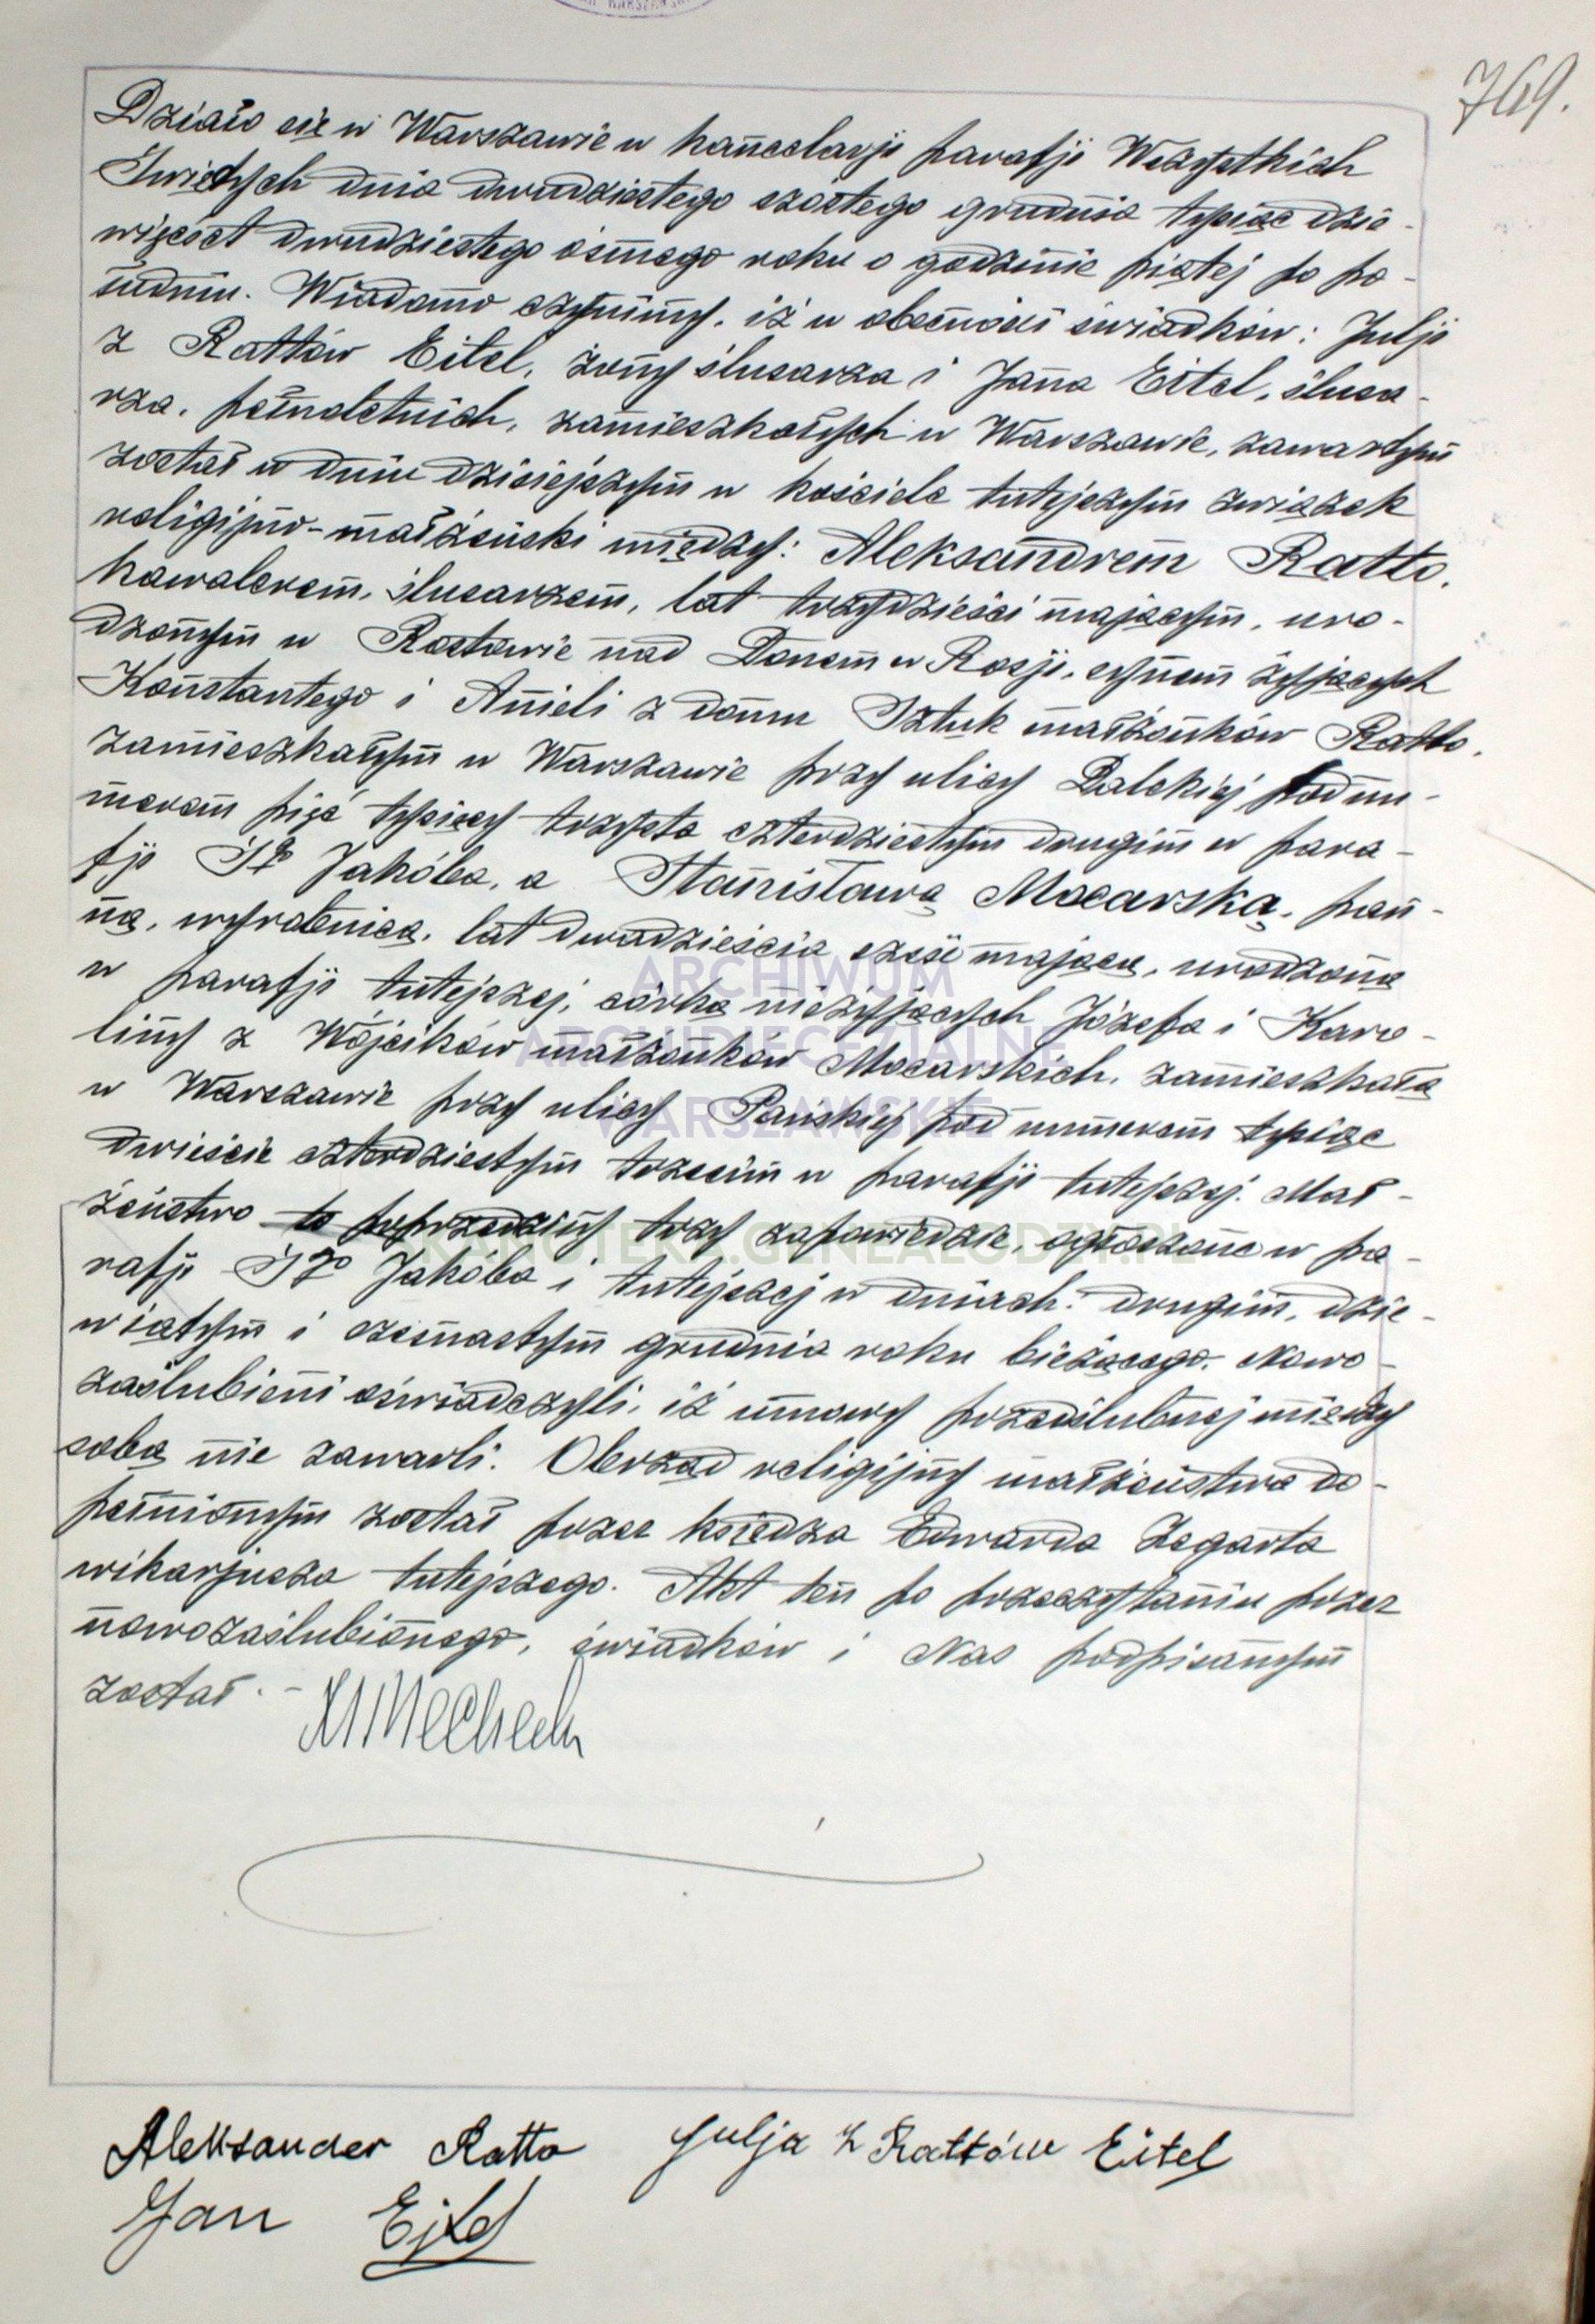 769.
Działo się w Warszawie w kancelarji parafji Wszystkich
Świętych dnia dwudziestego szóstego grudnia tysiąc dzie-
więćset dwudziestego ósmego roku o godzinie piątej po po-
łudniu. Wiadomo czynimy, iż w obecności świadków: Julji
z Rattów Eitel, żony ślusarza i Jana Eitel, ślusa-
rza, pełnoletnich, zamieszkałych w Warszawie, zawartym
został w dniu dzisiejszym w kościele tutejszym związek
religijno-małżeński między: Aleksandrem Ratto,
kawalerem, ślusarzem, lat trzydzieści mającym, uro-
dzonym w Rostowie nad Donem w Rosji, synem żyjących
Konstantego i Anieli z domu Sztuk małżonków Ratto,
zamieszkałym w Warszawie przy ulicy Dalekiej pod nu-
merem pięć tysięcy trzysta czterdziestym drugim w para-
fji Śgo Jakóba, a Stanisławą Mocarską, pan-
ną, wyrobnicą, lat dwadzieścia sześć mającą, urodzoną
w parafji tutejszej, córką nieżyjących Józefa i Karo-
liny z Wójcików małżonków Mocarskich, zamieszkałą
w Warszawie przy ulicy Pańskiej pod numerem tysiąc
dwieście czterdziestym trzecim w parafji tutejszej. Mał-
żeństwo to poprzedziły trzy zapowiedzie, ogłoszone w pa-
rafji Śgo Jakóba i tutejszej w dniach: drugim, dzie-
wiątym i szesnastym grudnia roku bieżącego. Nowo-
zaślubieni oświadczyli, iż umowy przedślubnej między
sobą nie zawarli. Obrząd religijny małżeństwa do-
pełnionym został przez księdza Edwarda Zegarta
wikarjusza tutejszego. Akt ten po przeczytaniu przez
nowozaślubionego, świadków i Nas podpisanym
został. -
Aleksander Ratto Julja z Rattów Eitel
Jan Ejtel
ARCHIWUM
ARCHIDIECEZJALNE
WARSZAWSKIE
KARTOTEKA.GENEALODZY.PL